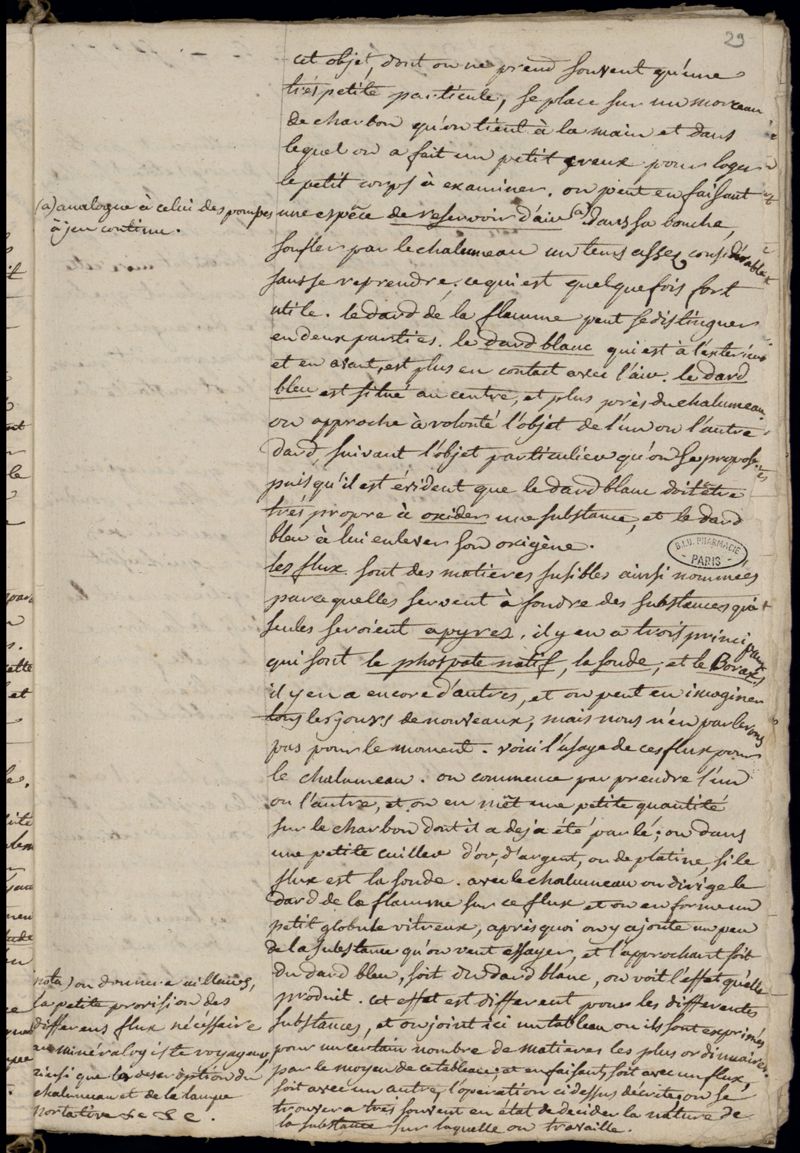 29
cet objet, dont on ne prend souvent qu'une
trés petité particule, se place sur un morceau
de charbon qu'on tient à la main et dans
lequel on a fait un petit creux pour loger
le petit corps à examiner. on peut en faisant
une espéce de reservoir d'air (a) dans sa bouche,
soufler par le chalumeau un tems assez considérable
sans se reprendre. ce qui est quelque fois fort
utile. le dard de la flamme peut se distinguer
en deux parties. le dard blanc qui est à l'exterieur
et en avant, est plus en contact avec l'air. le dard
bleu est situé au centre, et plus près du chalumeau,
on approche à volonté l'objet de l'un ou l'autre
dard, suivant l'objet particulier qu'on se propose
puisqu'il est évident que le dard blanc doit être
trés propre à oxider une substance, et le dard
bleu à lui enlever son oxigène.
les flux sont des matieres fusibles ainsi nommées
parcequelles servent à fondre des substances qui
seules seroient apyres. il y en a trois principaux
qui sont le phospate natif, la soude, et le Borax,
il y en a encore d'autres, et on peut en imaginer
tous les jours de nouveaux, mais nous n'en parlerons
pas pour le moment. voici l'usage de ces flux pour
le chalumeau. on commence par prendre l'un
ou l'autre, et on en mêt une petite quantité
sur le charbon dont il a deja été parlé; ou dans
une petite cuiller d'or, d'argent, ou de platine, si le
flux est la soude. avec le chalumeau on dirige le
dard de la flamme sur ce flux et on en forme un
petit globule vitreux, après quoi on y ajoute un peu
de la substance qu'on veut essayer, et l'approchant soit
du dard bleu, soit du dard blanc, on voit l'effet qu'elle
produit. cet effet est different pour les differentes
substances, et on joint ici un tableau ou ils sont exprimés
pour un certain nombre de matieres les plus ordinaires.
par le moyen de ce tableau, et en faisant soit avec un flux,
soit avec un autre, l'operation ci dessus décrite, on se
trouvera trés souvent en état de decider la nature de
la substance sur laquelle on travaille.
(a) analogue à celui des pompes
à jeu continu.
nota) on donnera ailleurs,
la petite provision des
differens flux nécéssaire
au minéralogiste voyageur,
ainsi que la description du
chalumeau et de la lampe
portative &c &c.
B.I.U. PHARMACIE
PARIS